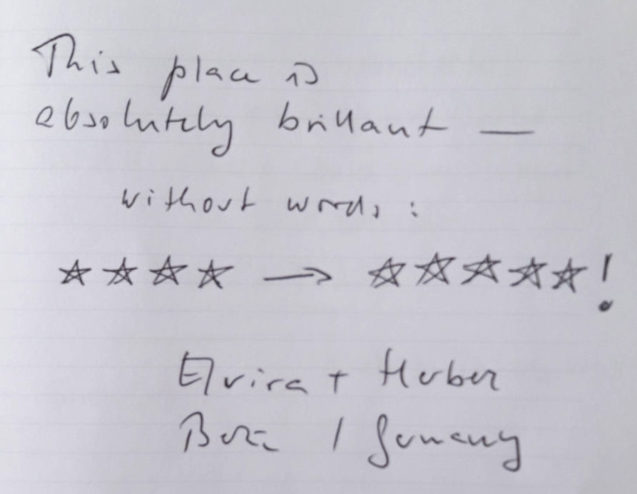 This place is
absolutely brillant —
without words :
☆☆☆☆ → ☆☆☆☆☆!
Elvira +
/ Germany